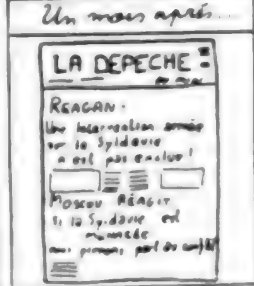 Un mois après...
LA DEPECHE
REAGAN.
Une intervention armée
sur la Syldavie
n'est pas exclue!
MOSCOU RÉAGIT
si la Syldavie est
menacée
nous prenons part au conflit